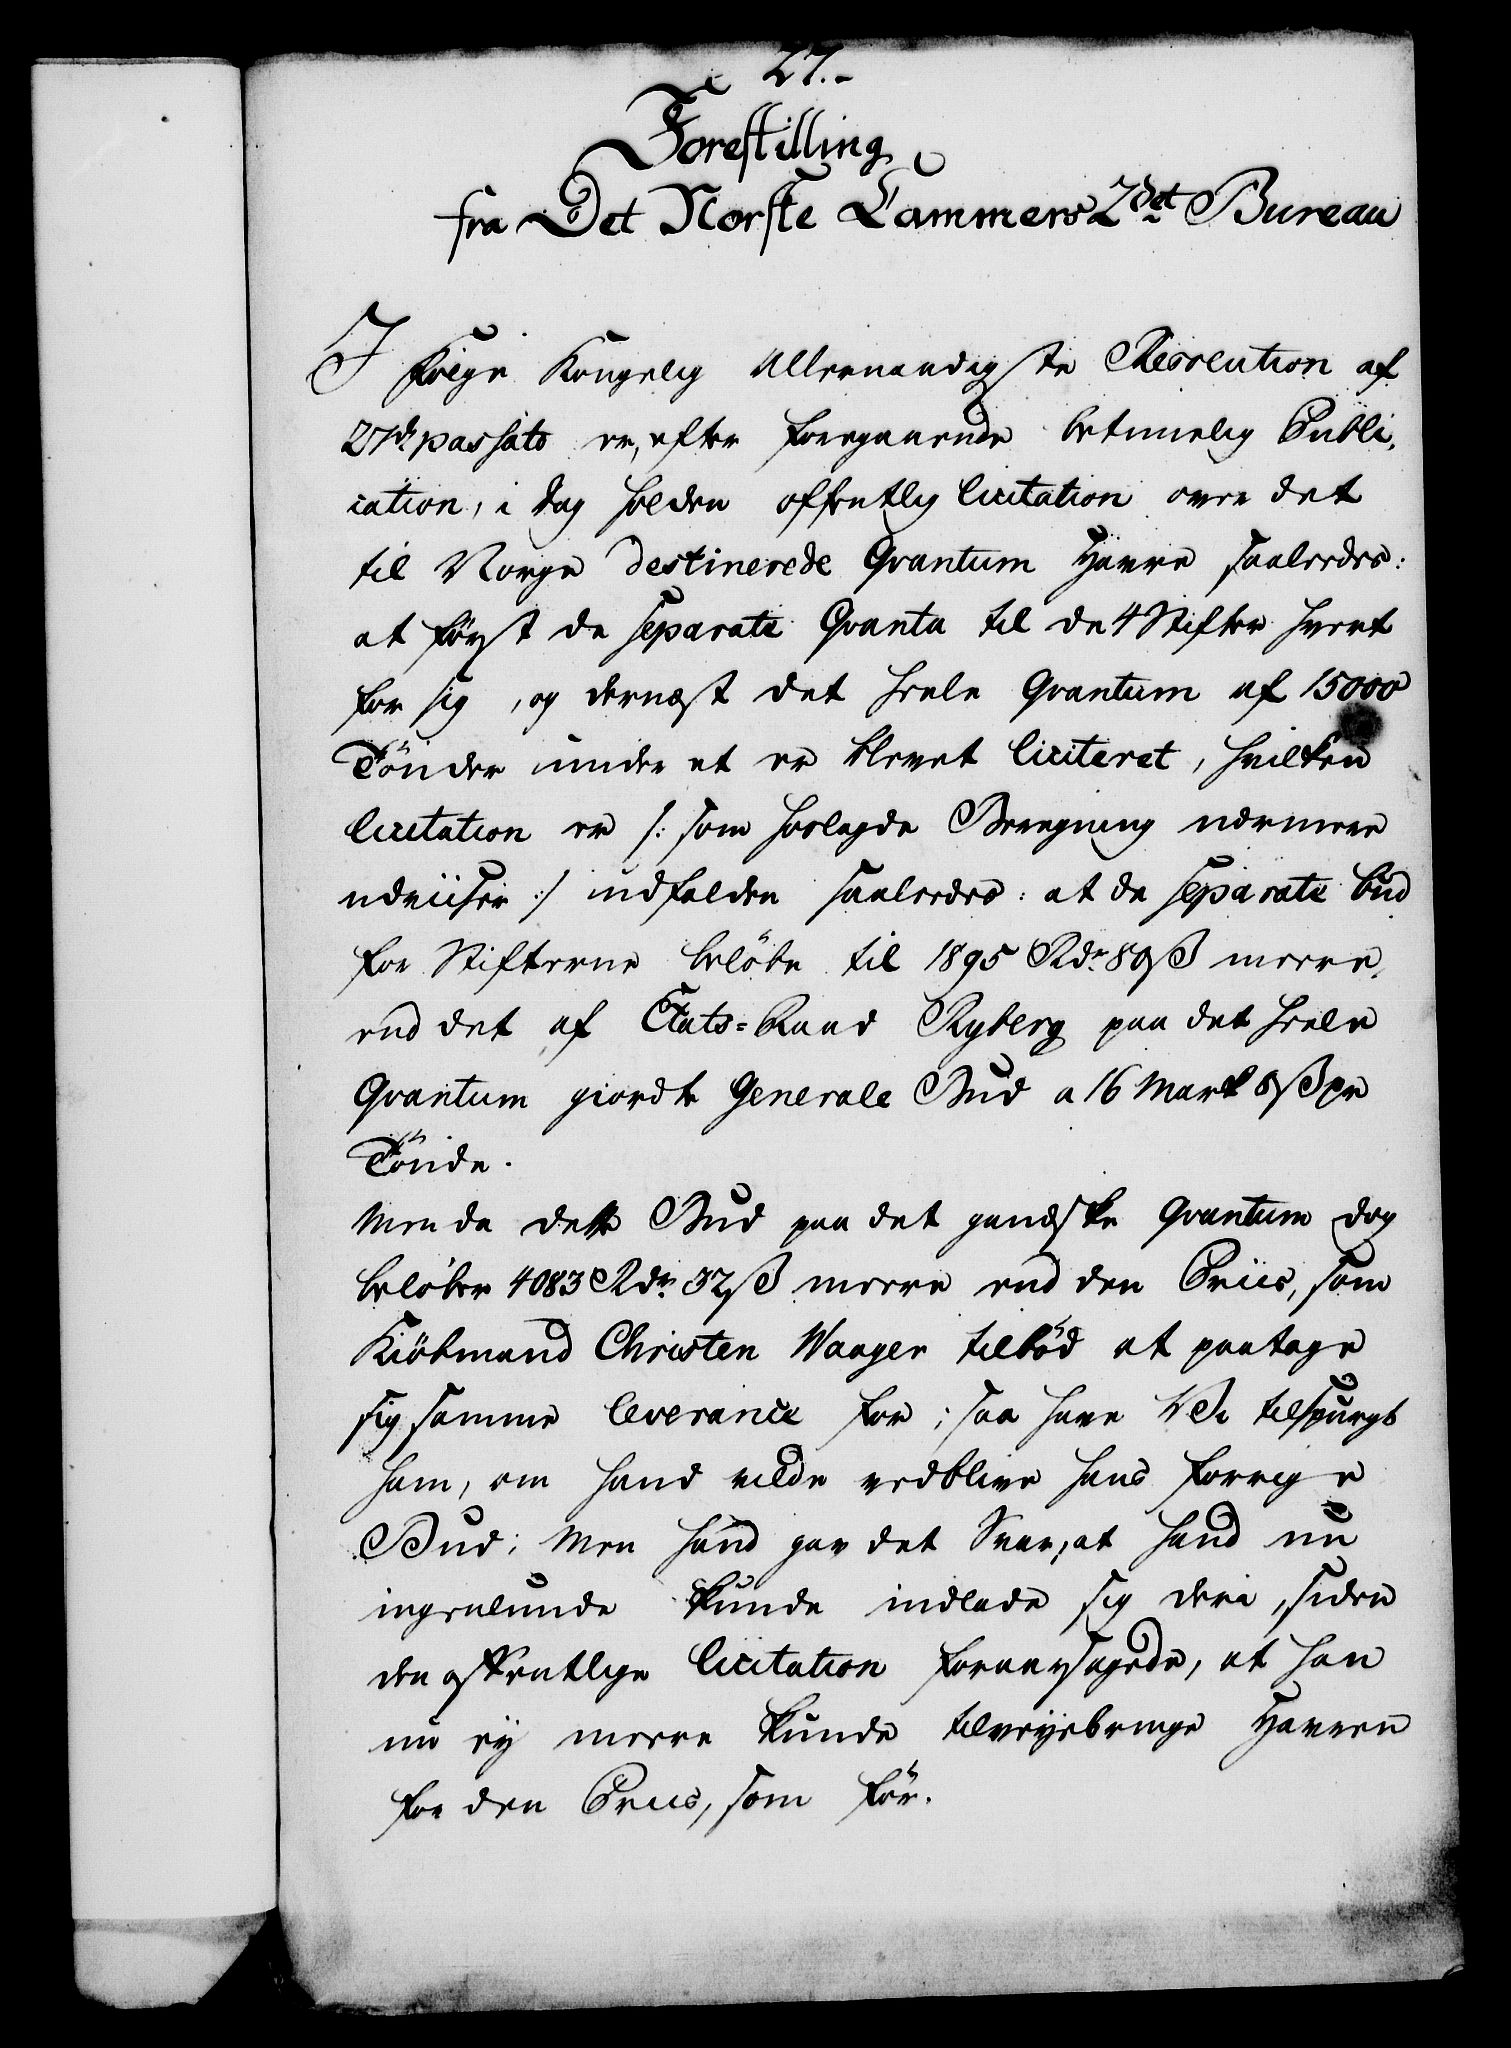 27.
Forestilling
fra Det Norske Cammers 2det Bureau
I Følge Kongelig Allernaadigste Resolution af
27de passato er, efter foregaaende betimelig Publi,
cation, i dag holden offentlig licitation over det
til Norge destinerede Qvantum Havre saaledes:
at først de separate Qvanta til de 4 Stifter hvert
for sig, og dernæst det heele Qvantum af 15000
Tönder under et er blevet liciteret, hvilken
licitation er /: som hoslagde Beregning nærmere
udviiser :/ udfalden saaledes: at de separate bud
for Stifterne beløbe til 1895 Rdr 80 ß meere,
end det af Etats=Raad Ryberg paa det heele
Qvantum giorde Generale Bud a 16 Mark 8 ß pr
Tönde.
Men da dette Bud paa det gandske Qvantum dog
beløber 4083 Rdr 32 ß meere end den Priis, som
Kiöbmand Christen Waager tilbød at paatage
sig samme leverance for; saa have Vi tilspurgt
ham, om hand vilde vedblive hans forrige
Bud; Men hand gav det Svar, at hand nu
ingenlunde kunde indlade sig deri, siden
den offentlige licitation foraarsagede, at han
nu ey meere kunde tilveyebringe Havren
for den Priis, som før.